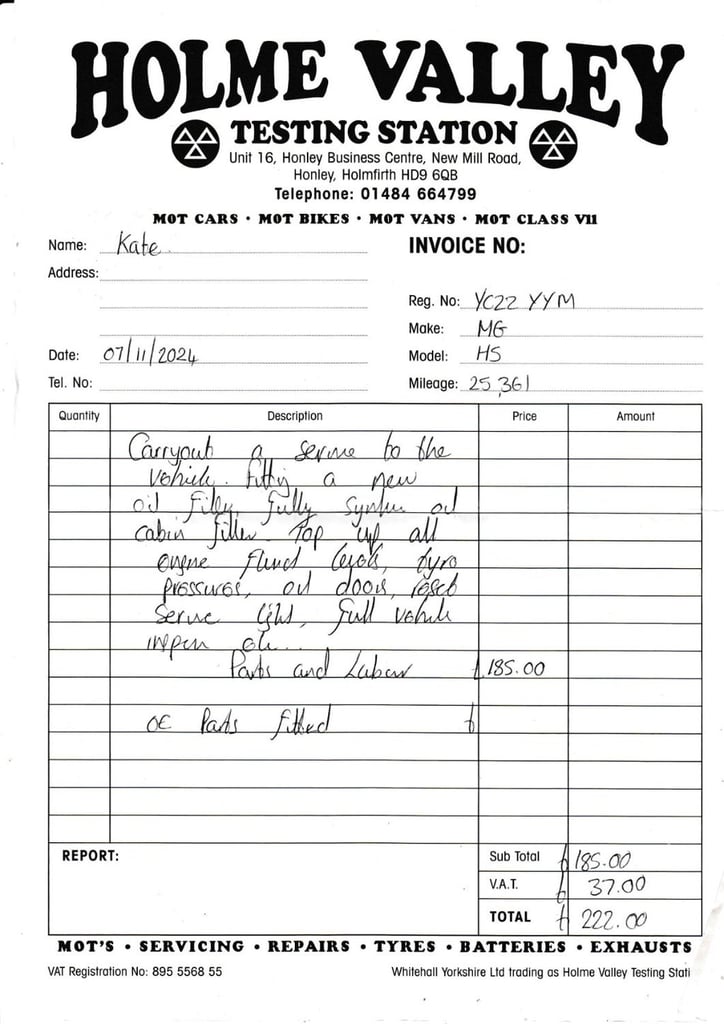 HOLME VALLEY
TESTING STATION
Unit 16, Honley Business Centre, New Mill Road,
Honley, Holmfirth HD9 6QB
Telephone: 01484 664799
MOT CARS · MOT BIKES · MOT VANS · MOT CLASS V11
Name: Kate
INVOICE NO:
Address:
Reg. No: YC22 YYM
Make: MG
Date: 07/11/2024
Model: HS
Tel. No:
Mileage: 25,361
Quantity Description Price Amount
Carryout a service to the
vehicle. Fitting a new
oil filter, fully synthe oil
cabin filter. Top up all
engine fluid levels, tyre
pressures, oil doors, reset
service light, full vehicle
inspen etc...
Parts and Labour £ 185.00
OE Parts fitted £
REPORT:
Sub Total £ 185.00
V.A.T. £ 37.00
TOTAL £ 222.00
MOT'S • SERVICING • REPAIRS • TYRES • BATTERIES • EXHAUSTS
VAT Registration No: 895 5568 55
Whitehall Yorkshire Ltd trading as Holme Valley Testing Stati